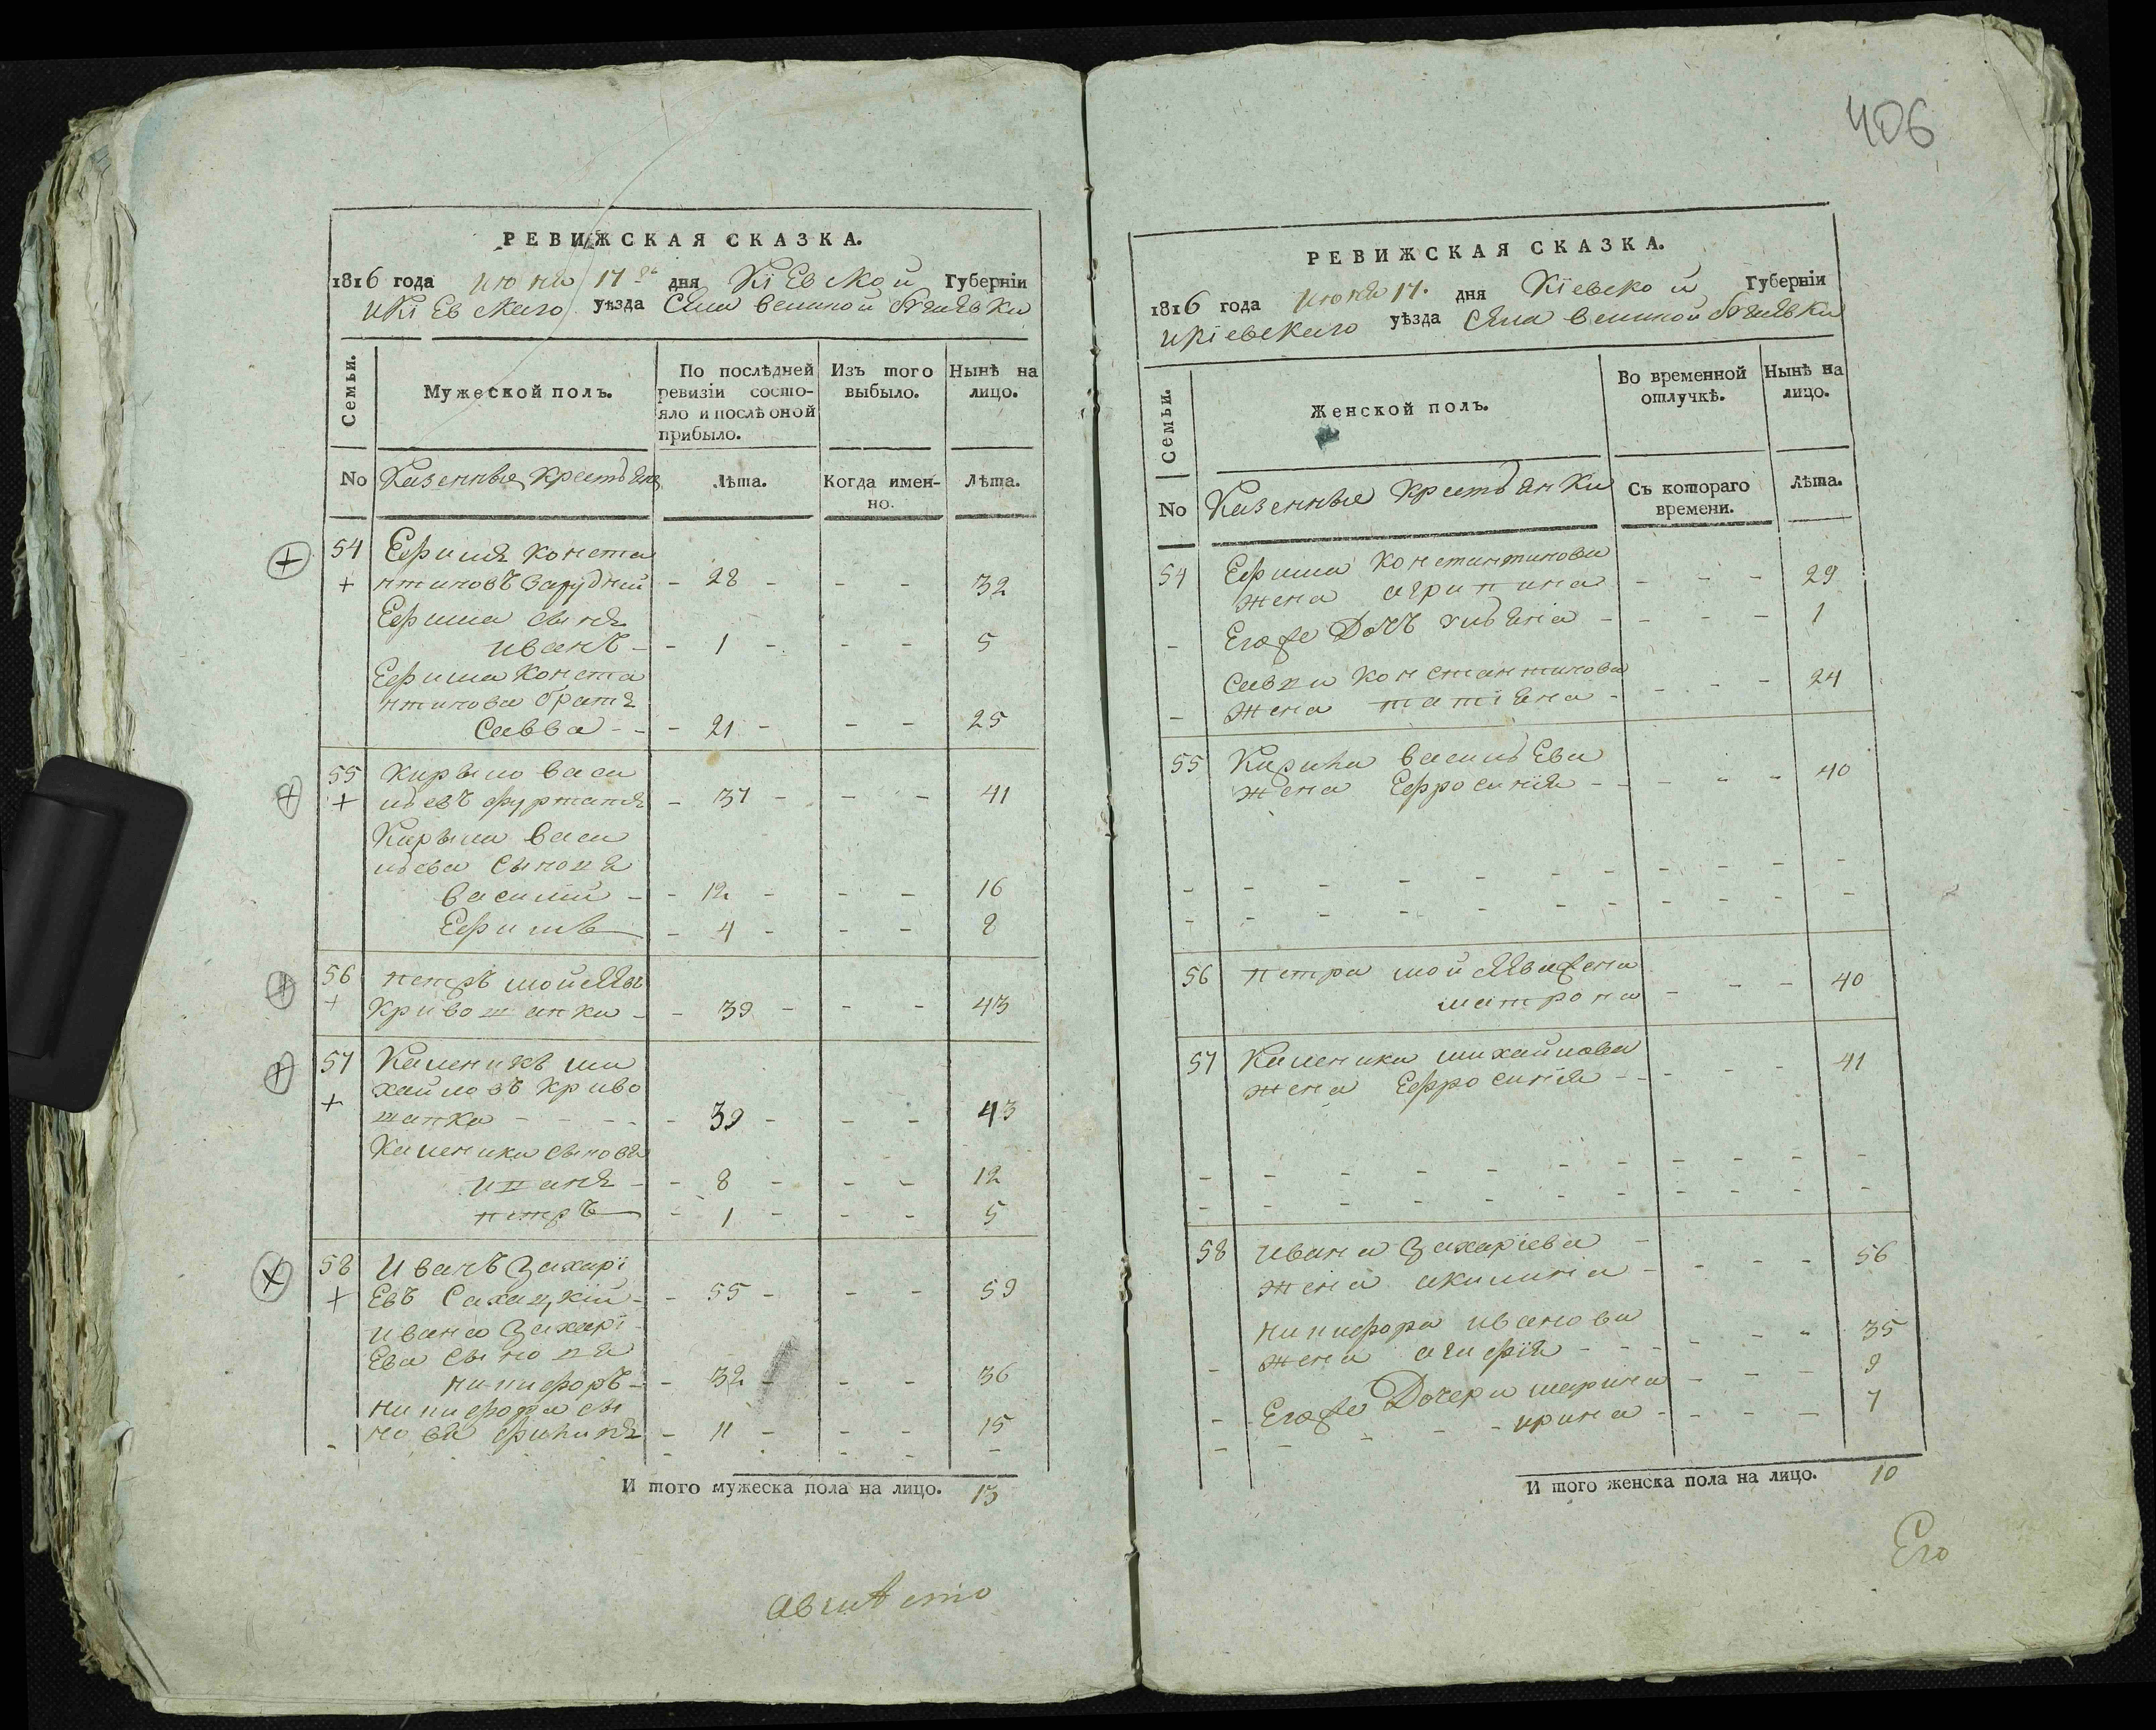 406
РЕВИЖСКАЯ СКАЗКА.
1816 года июня 17 дня Кіевской Губерніи
Кіевскаго уѣзда Села великой
Семьи.
Мужеской полъ.
По послѣдней ревизіи состо-
яло и послѣ оной
прибыло.
Изъ того
выбыло.
Нынѣ на
лицо.
No Казенные крестьяне
Лѣта.
Когда имен-
но.
Лѣта.
54 Ефимъ Конста
+ нтиновъ Зарудний - 28 - - - 32
Ефима сынъ
иванъ - - 1 - - - 5
Ефима Конста
нтинова братъ
Савва - - - 21 - - - 25
55 Кирыло васи
+ льевъ фурманъ - 37 - - - 41
Кирыла Васи
льева сыновя
василий - - 12 - - - 16
Ефимъ - 4 - - - 8
56 петръ мойсѣевъ
+ Кривошапка - - 39 - - - 43
57 Каленикъ ми
хайловъ криво
+ шапка - - - - - 39 - - - 43
Каленика сыновя
- - 8 - - - 12
петръ - 1 - - - 5
58 Иванъ Захарі
+ Евъ Сахацкій - - 55 - - - 59
ивана Захарі
Ева сыновя
никифоръ - - 32 - - - 36
никифора сы
новя филипъ - 11 - - - 15
И того мужеска пола на лицо. 13
РЕВИЖСКАЯ СКАЗКА.
1816 года июня 17. дня Кіевской Губерніи
Кіевскаго уѣзда Села великой
Семьи.
Женской полъ.
Во временной
отлучкѣ.
Нынѣ на
лицо.
No Казенные крестьянки
Съ котораго
времени.
Лѣта.
54 Ефима Константинова
жена агрипина - - - 29
- Егоже Дочъ - - - - 1
Савки Константинова
- жена татіяна - - - - 24
55 Кирила васильева
жена Ефросинія - - - - - 40
56 петра мойсѣева жена
матрона - - - 40
57 Каленика михайлова
жена Ефросинія - - - - - 41
58 ивана Захаріева -
жена акилина - - - - 56
никифора иванова
- жена агафія - - - - - - 35
- Егоже Дочери марина - - - 9
- - - - - ирина - - - - 7
И того женска пола на лицо. 10
Его